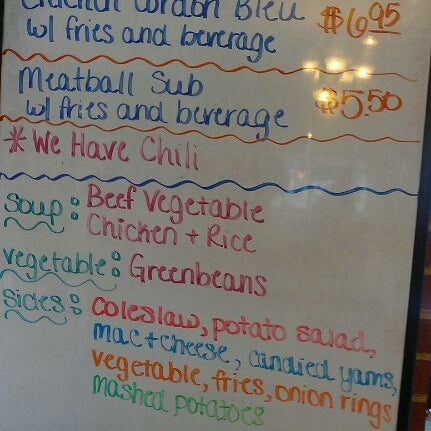 Chicken Cordon Bleu $6.95
w/ fries and beverage
Meatball Sub
w/ fries and beverage $5.50
* We Have Chili
soup: Beef Vegetable
Chicken + Rice
vegetable: Greenbeans
sides: coleslaw, potato salad,
mac+cheese, candied yams,
vegetable, fries, onion rings
mashed potatoes